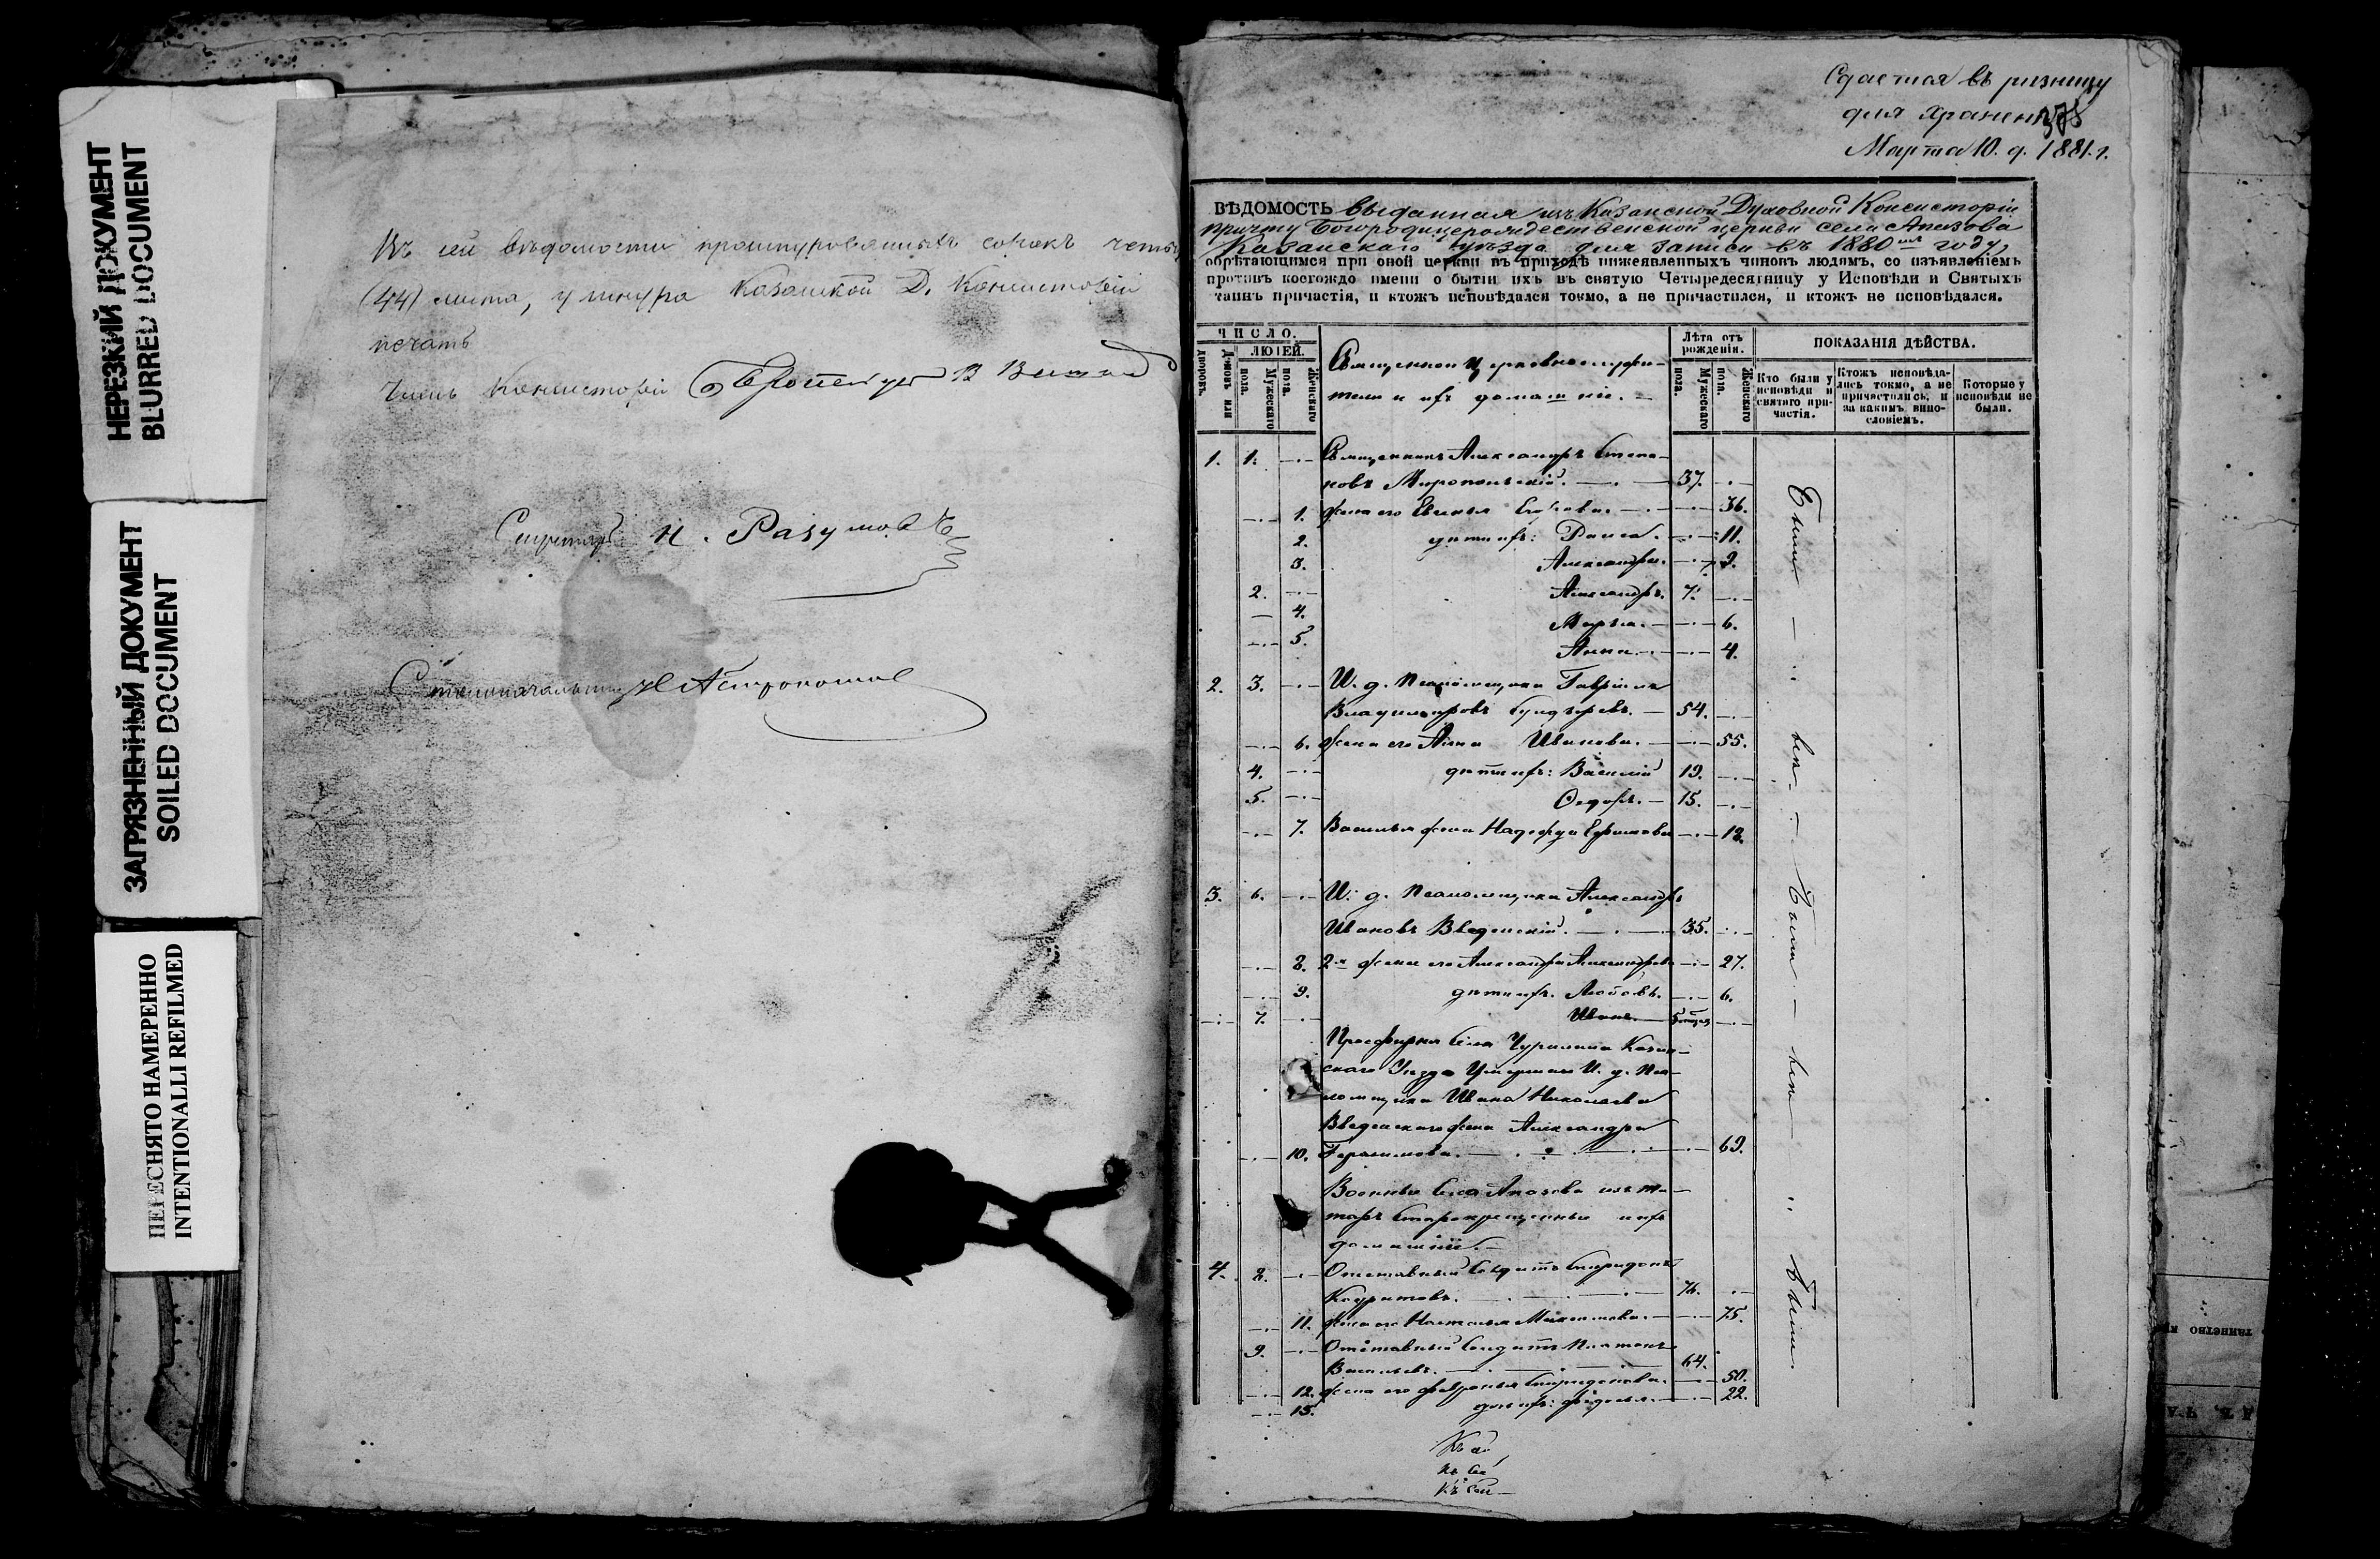 НЕРЕЗКИЙ ДОКУМЕНТ
BLURRED DOCUMENT
ЗАГРЯЗНЕННЫЙ ДОКУМЕНТ
SOILED DOCUMENT
ПЕРЕСНЯТО НАМЕРЕННО
INTENTIONALLI REFILMED
Въ сей вѣдомости прошнурованныхъ сорокъ четы
(44) листа, у шнура Казанской Д. Консисторіи
печать
Членъ Консисторіи Протоіерей В
Секретарь Н. Разумовъ
Столоначальникъ
Сдается въ ризницу
для храненія
375
Марта 10. д. 1881. г.
ВѢДОМОСТЬ выданная изъ Казанской Духовной Консисторіи
причту Богородицерождественской церкви села Апазова
Казанскаго уѣзда для записи въ 1880мъ году,
обрѣтающимся при оной церкви въ приходѣ нижеявленныхъ чиновъ людямъ, со изъявленіемъ
противъ коегождо имени о бытіи ихъ въ святую Четыредесятницу у Исповѣди и Святыхъ
таинъ причастія, и ктожъ исповѣдался токмо, а не причастился, и ктожъ не исповѣдался.
ЧИСЛО.
Домовъ или дворовъ.
ЛЮДЕЙ.
Мужескаго пола.
Женскаго пола.
Священно и церковнослужи-
тели и ихъ домашніе.
Лѣта отъ рожденія.
Мужескаго пола.
Женскаго пола.
ПОКАЗАНІЯ ДѢЙСТВА.
Кто были у исповѣди и святаго при-частія.
Ктожъ исповѣда-лись токмо, а не причастились, и за какимъ вино-словіемъ.
Которые у исповѣди не были.
1. 1. Священникъ Александръ Степа-
новъ Миропольскій. 37.
1. жена его Евгенія 36.
2. дѣти ихъ: Раиса. 11.
3. Александра. 9.
2. Александръ. 7.
4. Марія. 6.
5. Анна. 4.
2. 3. И. д. псаломщика Гавріилъ
Владиміровъ 54.
6. жена его Анна Иванова. 55.
4. дѣти ихъ: Василій 19.
5. Ѳедоръ. 15.
7. Василья жена Надежда Ефимова 18.
3. 6. И. д. псаломщика Александръ
Ивановъ Введенскій. 35.
8. 2я жена его Александра Александрова 27.
9. дѣти ихъ. Любовь. 6.
7. Иванъ. 5
Просфирня села Чурилина Казан-
скаго Уѣзда Умершаго И. д. Пса-
ломщика Ивана Николаева
Введенскаго жена Александра
10. Герасимова. 69.
Военные села Апазова изъ та-
таръ старокрещенные и ихъ
домашніе.
4. 8. Отставный Солдатъ Спиридонъ
Кондратовъ. 76.
11. жена его Настасья 75.
9. Отставный Солдатъ Платонъ
Васильевъ. 64.
12. жена его Февронья Спиридонова. 50.
13. дочь ихъ: Федосья. 22.
Были
всѣ
Были
всѣ
Были.